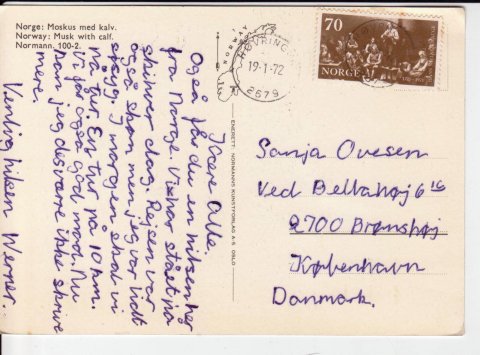 Norge: Moskus med kalv.
Norway: Musk with calf.
Normann. 100-2.
NORWAY
HØVRINGEN
19-1-72
2679
70
NORGE
ENERETT: NORMANNS KUNSTFORLAG A·S OSLO
Kære Alle.
Også får du en hilsen her
fra Norge. Vi har stået på
ski hver dag. Rejsen var
også skøn men jeg var lidt
I morgen skal vi
på tur. En tur på 10 km.
Vi får også god mad. Nu
kan jeg desværre ikke skrive
mere.
Venlig hilsen Werner.
Sanja Ovesen
Ved Bellahøj 6
2700 Brønshøj
København
Danmark.